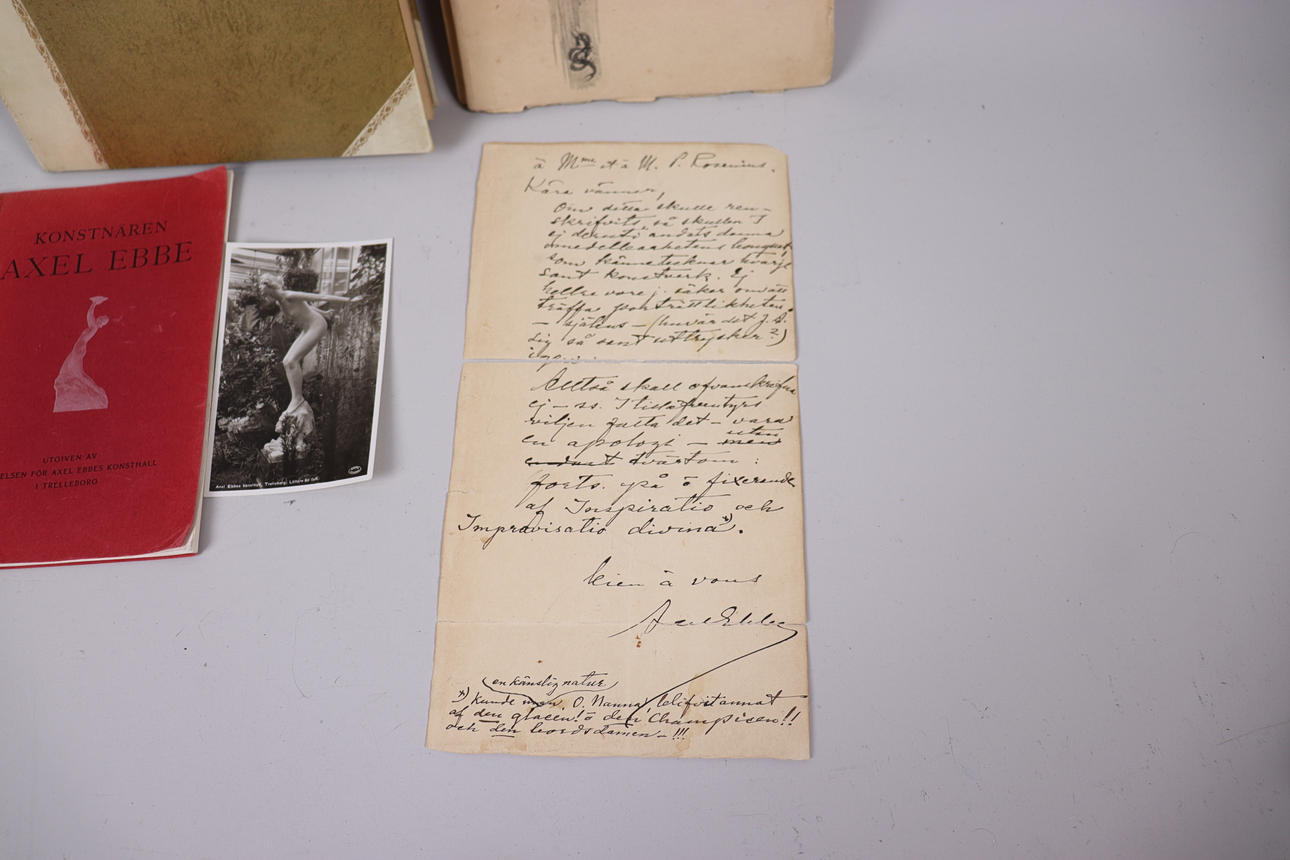 KONSTNÄREN
AXEL EBBE
UTGIVEN AV
ELSEN FÖR AXEL EBBES KONSTHALL
I TRELLEBORG
Axel Ebbes konsthall, Trelleborg.
à Mme et à M. P. Rosenius.
Kära vänner,
Om detta skulle ren-
skrifvits, så skullen I
ej deruti andats denna
omedelbarhetens bouquet,
som kännetecknar hvarje
sant konstverk. Ej
heller vore j. säker om att
träffa porträttlikheten
– själens – (huru är det J. A.
sig så sant uttrycker?)
igen.
Alltså skall ofvanskrifna
ej – ss. I till äfventyrs
viljen fatta det – vara
en apologi – utan
tvärtom:
forts. på ö fixerande
af Inspiratio och
Improvisatio divina*).
bien à vous
Axel Ebbe
(en känslig natur)
*) kunde man, O. Nanna, blifvit annat
af den glacen! ö den Champisen!!
och den bordsdamen – !!!